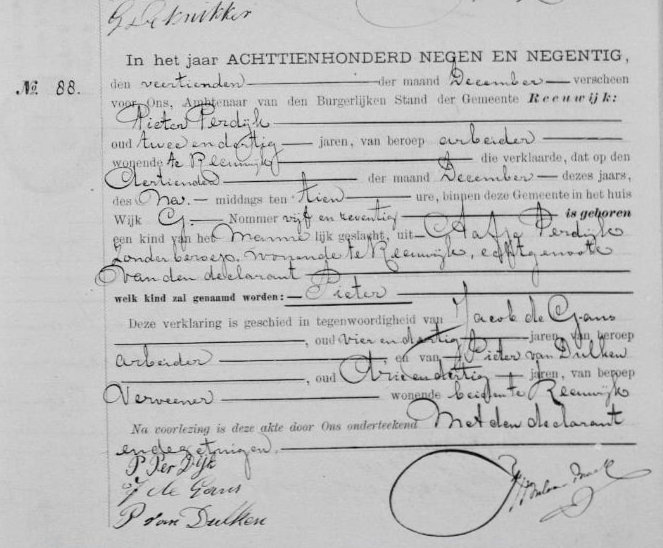 G Deknikker
In het jaar ACHTTIENHONDERD NEGEN EN NEGENTIG,
№ 88.
den veertienden der maand December verscheen
voor Ons, Ambtenaar van den Burgerlijken Stand der Gemeente Reeuwijk:
Pieter Perdijk
oud twee en dertig jaren, van beroep arbeider
wonende te Reeuwijk die verklaarde, dat op den
dertienden der maand December dezes jaars,
des Na.- middags ten tien ure, binnen deze Gemeente in het huis
Wijk G. Nommer vijf en zeventig is geboren
een kind van het Manne lijk geslacht, uit Aafje Perdijk
zonder beroep, wonende te Reeuwijk, echtgenoote
van den declarant
welk kind zal genaamd worden: Pieter
Deze verklaring is geschied in tegenwoordigheid van Jacob de Gans
, oud vier en dertig jaren, van beroep
arbeider , en van Pieter van Dulken
, oud drie en dertig jaren, van beroep
Verveener wonende beiden te Reeuwijk
Na voorlezing is deze akte door Ons onderteekend Met den declarant
en de getuigen.
P Per Dijk
J de Gans
P van Dulken